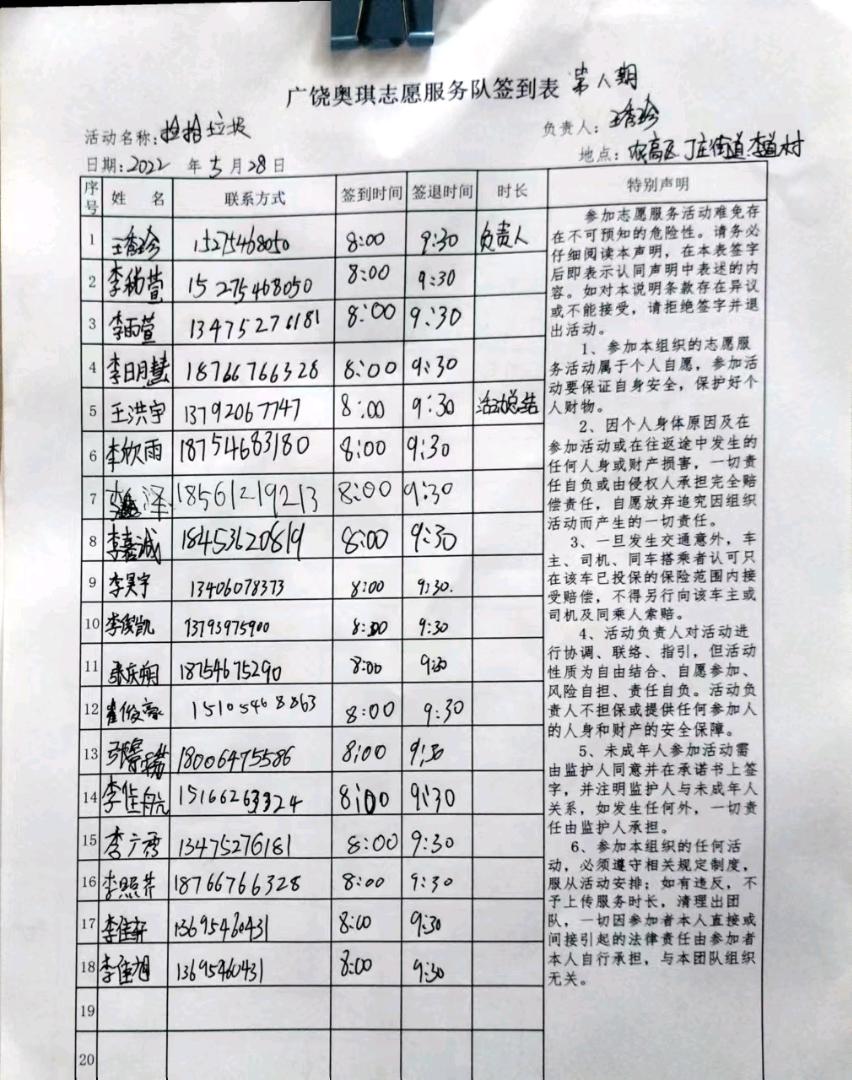 广饶奥琪志愿服务队签到表 第八期
活动名称:捡拾垃圾 负责人:王香珍
日期:2022 年 5 月 28 日 地点:农高区丁庄街道李道村
序号 姓 名 联系方式 签到时间 签退时间 时长 特别声明
1 王香珍 15275468050 8:00 9:30 负责人
2 15275468050 8:00 9:30
3 李雨萱 13475276181 8:00 9:30
4 李明慧 18766766328 8:00 9:30
5 王洪宇 13792067747 8:00 9:30 活动总结
6 李欣雨 18754683180 8:00 9:30
7 18561219213 8:00 9:30
8 李嘉诚 18453620819 8:00 9:30
9 李昊宇 13406078373 8:00 9:30.
10 李俊凯 13793975900 8:30 9:30
11 18754675290 8:00 9:30
12 15105468863 8:00 9:30
13 18006475586 8:00 9:30
14 李佳航 15166263324 8:00 9:30
15 李广秀 13475276181 8:00 9:30
16 18766766328 8:00 9:30
17 李佳轩 13695460431 8:00 9:30
18 李佳旭 13695460431 8:00 9:30
19
20
参加志愿服务活动难免存
在不可预知的危险性。请务必
仔细阅读本声明，在本表签字
后即表示认同声明中表述的内
容。如对本说明条款存在异议
或不能接受，请拒绝签字并退
出活动。
1、参加本组织的志愿服
务活动属于个人自愿，参加活
动要保证自身安全，保护好个
人财物。
2、因个人身体原因及在
参加活动或在往返途中发生的
任何人身或财产损害，一切责
任自负或由侵权人承担完全赔
偿责任，自愿放弃追究因组织
活动而产生的一切责任。
3、一旦发生交通意外，车
主、司机、同车搭乘者认可只
在该车已投保的保险范围内接
受赔偿，不得另行向该车主或
司机及同乘人索赔。
4、活动负责人对活动进
行协调、联络、指引，但活动
性质为自由结合、自愿参加、
风险自担、责任自负。活动负
责人不担保或提供任何参加人
的人身和财产的安全保障。
5、未成年人参加活动需
由监护人同意并在承诺书上签
字，并注明监护人与未成年人
关系，如发生任何外，一切责
任由监护人承担。
6、参加本组织的任何活
动，必须遵守相关规定制度，
服从活动安排；如有违反，不
予上传服务时长，清理出团
队，一切因参加者本人直接或
间接引起的法律责任由参加者
本人自行承担，与本团队组织
无关。